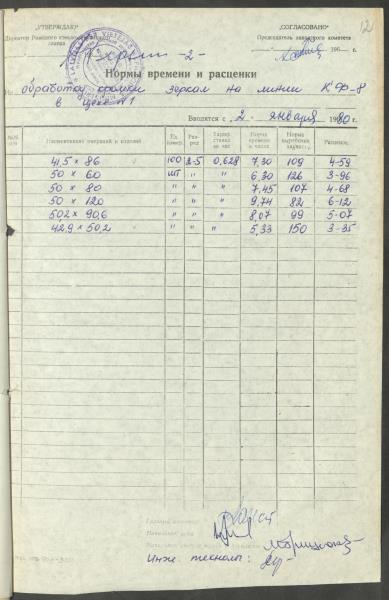 12
„УТВЕРЖДАЮ"
„СОГЛАСОВАНО"
Директор Рижского
завода
Председатель заводского комитета
196 г.
-2-
Нормы времени и расценки
На обработку кромки зеркал на линии КФ-8
в цехе №1
Вводятся с „2„ января 1980 г.
Наименование операций и изделий
Ед. измер.
Раз-ряд
Тариф. ставка за час
Норма времени в часах
Норма выработки
Расценка
41,5 × 86 100 2-5 0,628 7,30 109 4-59
50 × 60 шт „ „ 6,30 126 3-96
50 × 80 „ „ „ 7,45 107 4-68
50 × 120 „ „ „ 9,74 82 6-12
50,2 × 90,6 „ „ „ 8,07 99 5-07
42,9 × 50,2 „ „ „ 5,33 150 3-35
Инж. технолог: